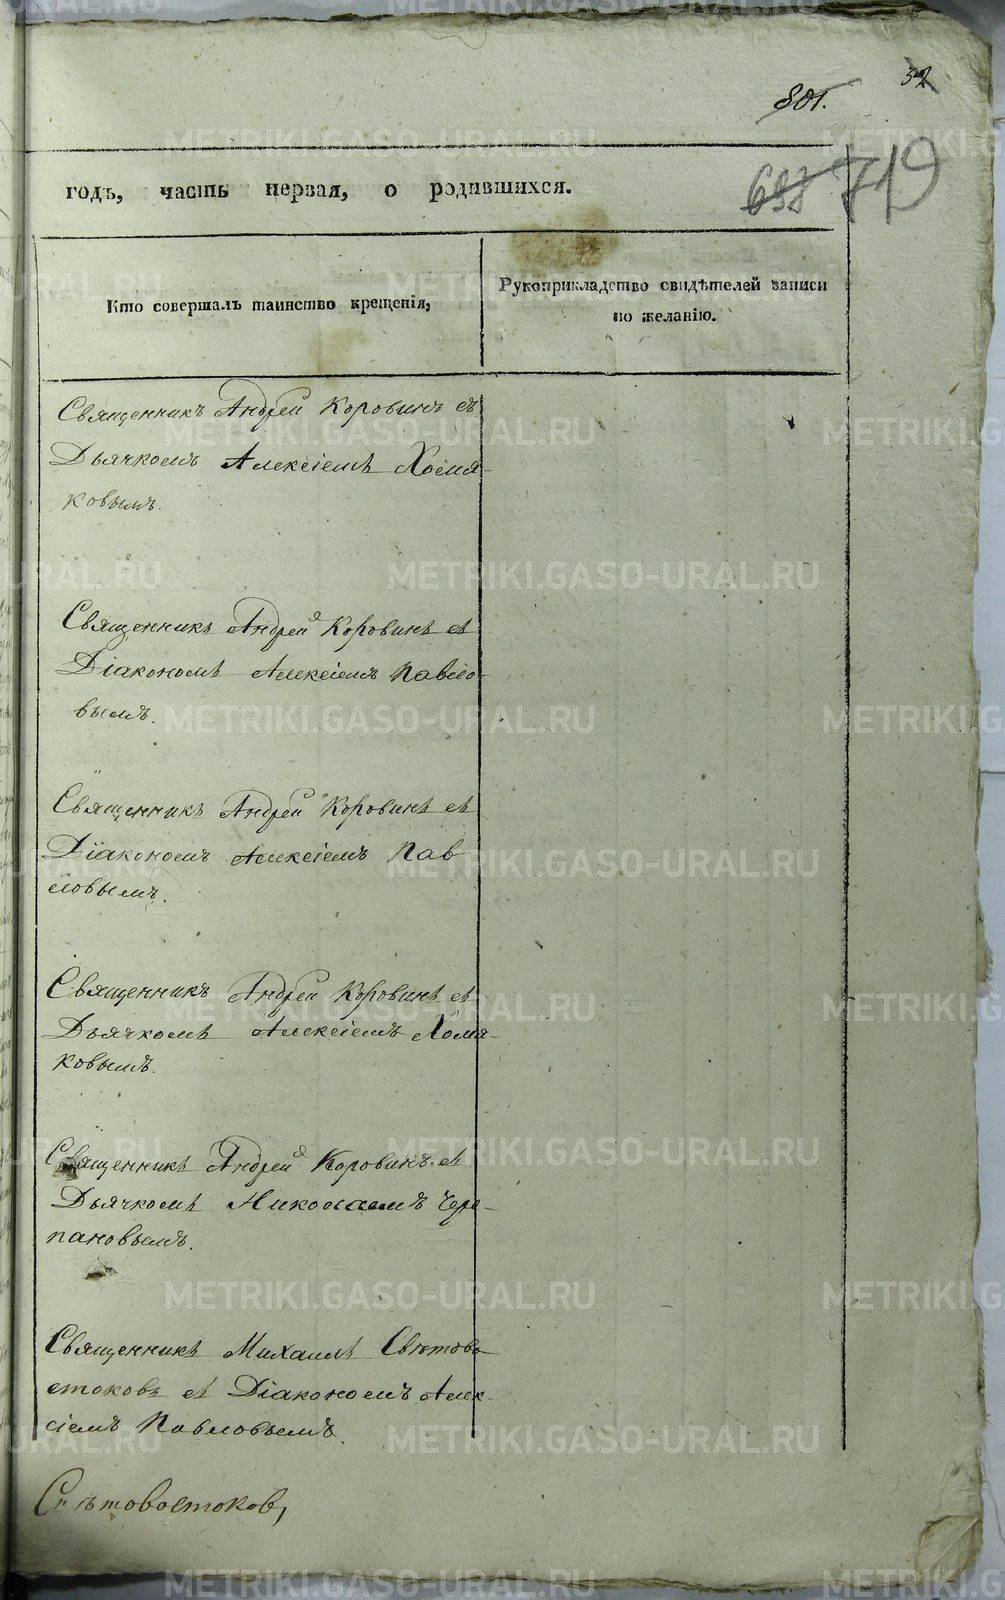 801.
32
698 719
годъ, часть первая, о родившихся.
Кто совершалъ таинство крещенія,
Рукоприкладство свидѣтелей записи
по желанію.
Священникъ Андрей Коровинъ съ
Дьячкомъ Алексіемъ Хомя-
ковымъ.
Священникъ Андрей Коровинъ съ
Діакономъ Алексіемъ Павло-
вымъ.
Священникъ Андрей Коровинъ съ
Діакономъ Алексіемъ Пав
ловымъ.
Священникъ Андрей Коровинъ съ
Дьячкомъ Алексіемъ Хомя-
ковымъ.
Священникъ Андрей Коровинъ съ
Дьячкомъ Николаемъ Чере-
пановымъ.
Священникъ Михаилъ Свѣтово
стоковъ съ Діакономъ Алек-
сіемъ Павловымъ.
Свѣтовостоковъ,
METRIKI.GASO-URAL.RU